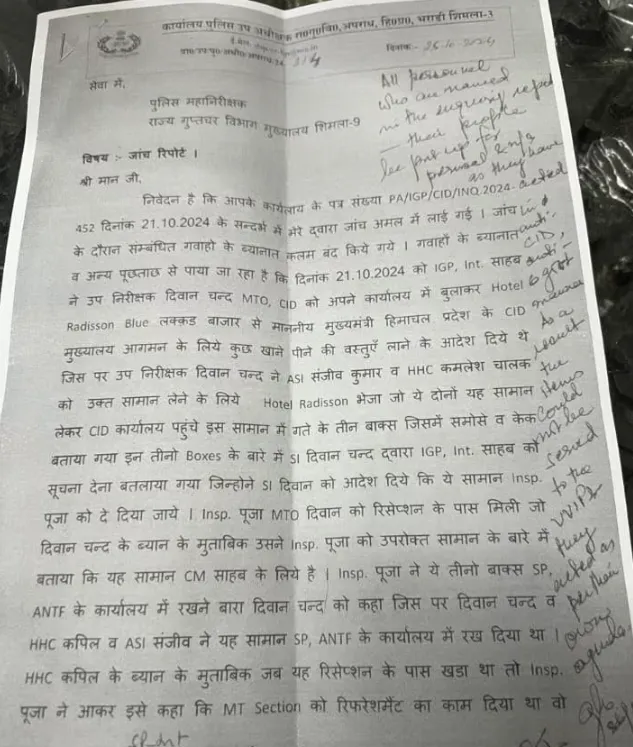 कार्यालय पुलिस उप अधीक्षक रा०गु०वि०, अपराध, हि०प्र०, भराड़ी शिमला-3
दिनांक:- 25-10-2024
सेवा में,
पुलिस महानिरीक्षक
राज्य गुप्तचर विभाग मुख्यालय शिमला-9
विषय :- जांच रिपोर्ट ।
श्री मान जी,
निवेदन है कि आपके कार्यालय के पत्र संख्या PA/IGP/CID/INQ.2024-
452 दिनांक 21.10.2024 के सन्दर्भ में मेरे द्वारा जांच अमल में लाई गई । जांच
के दौरान सम्बंधित गवाहो के ब्यानात कलम बंद किये गये । गवाहों के ब्यानात
व अन्य पूछताछ से पाया जा रहा है कि दिनांक 21.10.2024 को IGP, Int. साहब
ने उप निरीक्षक दिवान चन्द MTO, CID को अपने कार्यालय में बुलाकर Hotel
Radisson Blue लक्कड बाजार से माननीय मुख्यमंत्री हिमाचल प्रदेश के CID
मुख्यालय आगमन के लिये कुछ खाने पीने की वस्तुएँ लाने के आदेश दिये थे
जिस पर उप निरीक्षक दिवान चन्द ने ASI संजीव कुमार व HHC कमलेश चालक
को उक्त सामान लेने के लिये Hotel Radisson भेजा जो ये दोनों यह सामान
लेकर CID कार्यालय पहुंचे इस सामान में गते के तीन बाक्स जिसमें समोसे व केक
बताया गया इन तीनो Boxes के बारे में SI दिवान चन्द द्वारा IGP, Int. साहब को
सूचना देना बतलाया गया जिन्होने SI दिवान को आदेश दिये कि ये सामान Insp.
पूजा को दे दिया जाये । Insp. पूजा MTO दिवान को रिसेप्शन के पास मिली जो
दिवान चन्द के ब्यान के मुताबिक उसने Insp. पूजा को उपरोक्त सामान के बारे में
बताया कि यह सामान CM साहब के लिये है । Insp. पूजा ने ये तीनो बाक्स SP,
ANTF के कार्यालय में रखने बारा दिवान चन्द को कहा जिस पर दिवान चन्द व
HHC कपिल व ASI संजीव ने यह सामान SP, ANTF के कार्यालय में रख दिया था ।
HHC कपिल के ब्यान के मुताबिक जब यह रिसेप्शन के पास खडा था तो Insp.
पूजा ने आकर इसे कहा कि MT Section को रिफरेशमेंट का काम दिया था वो
All personnel
who are named
in the enquiry report
— their profile
be put up for
perusal & n/a
as they have
acted
in
anti-
CID,
anti-
Govt
manner
As a
result
the
items
could
not be
served
to the
VVIPs
they
acted as
per their
own
agenda